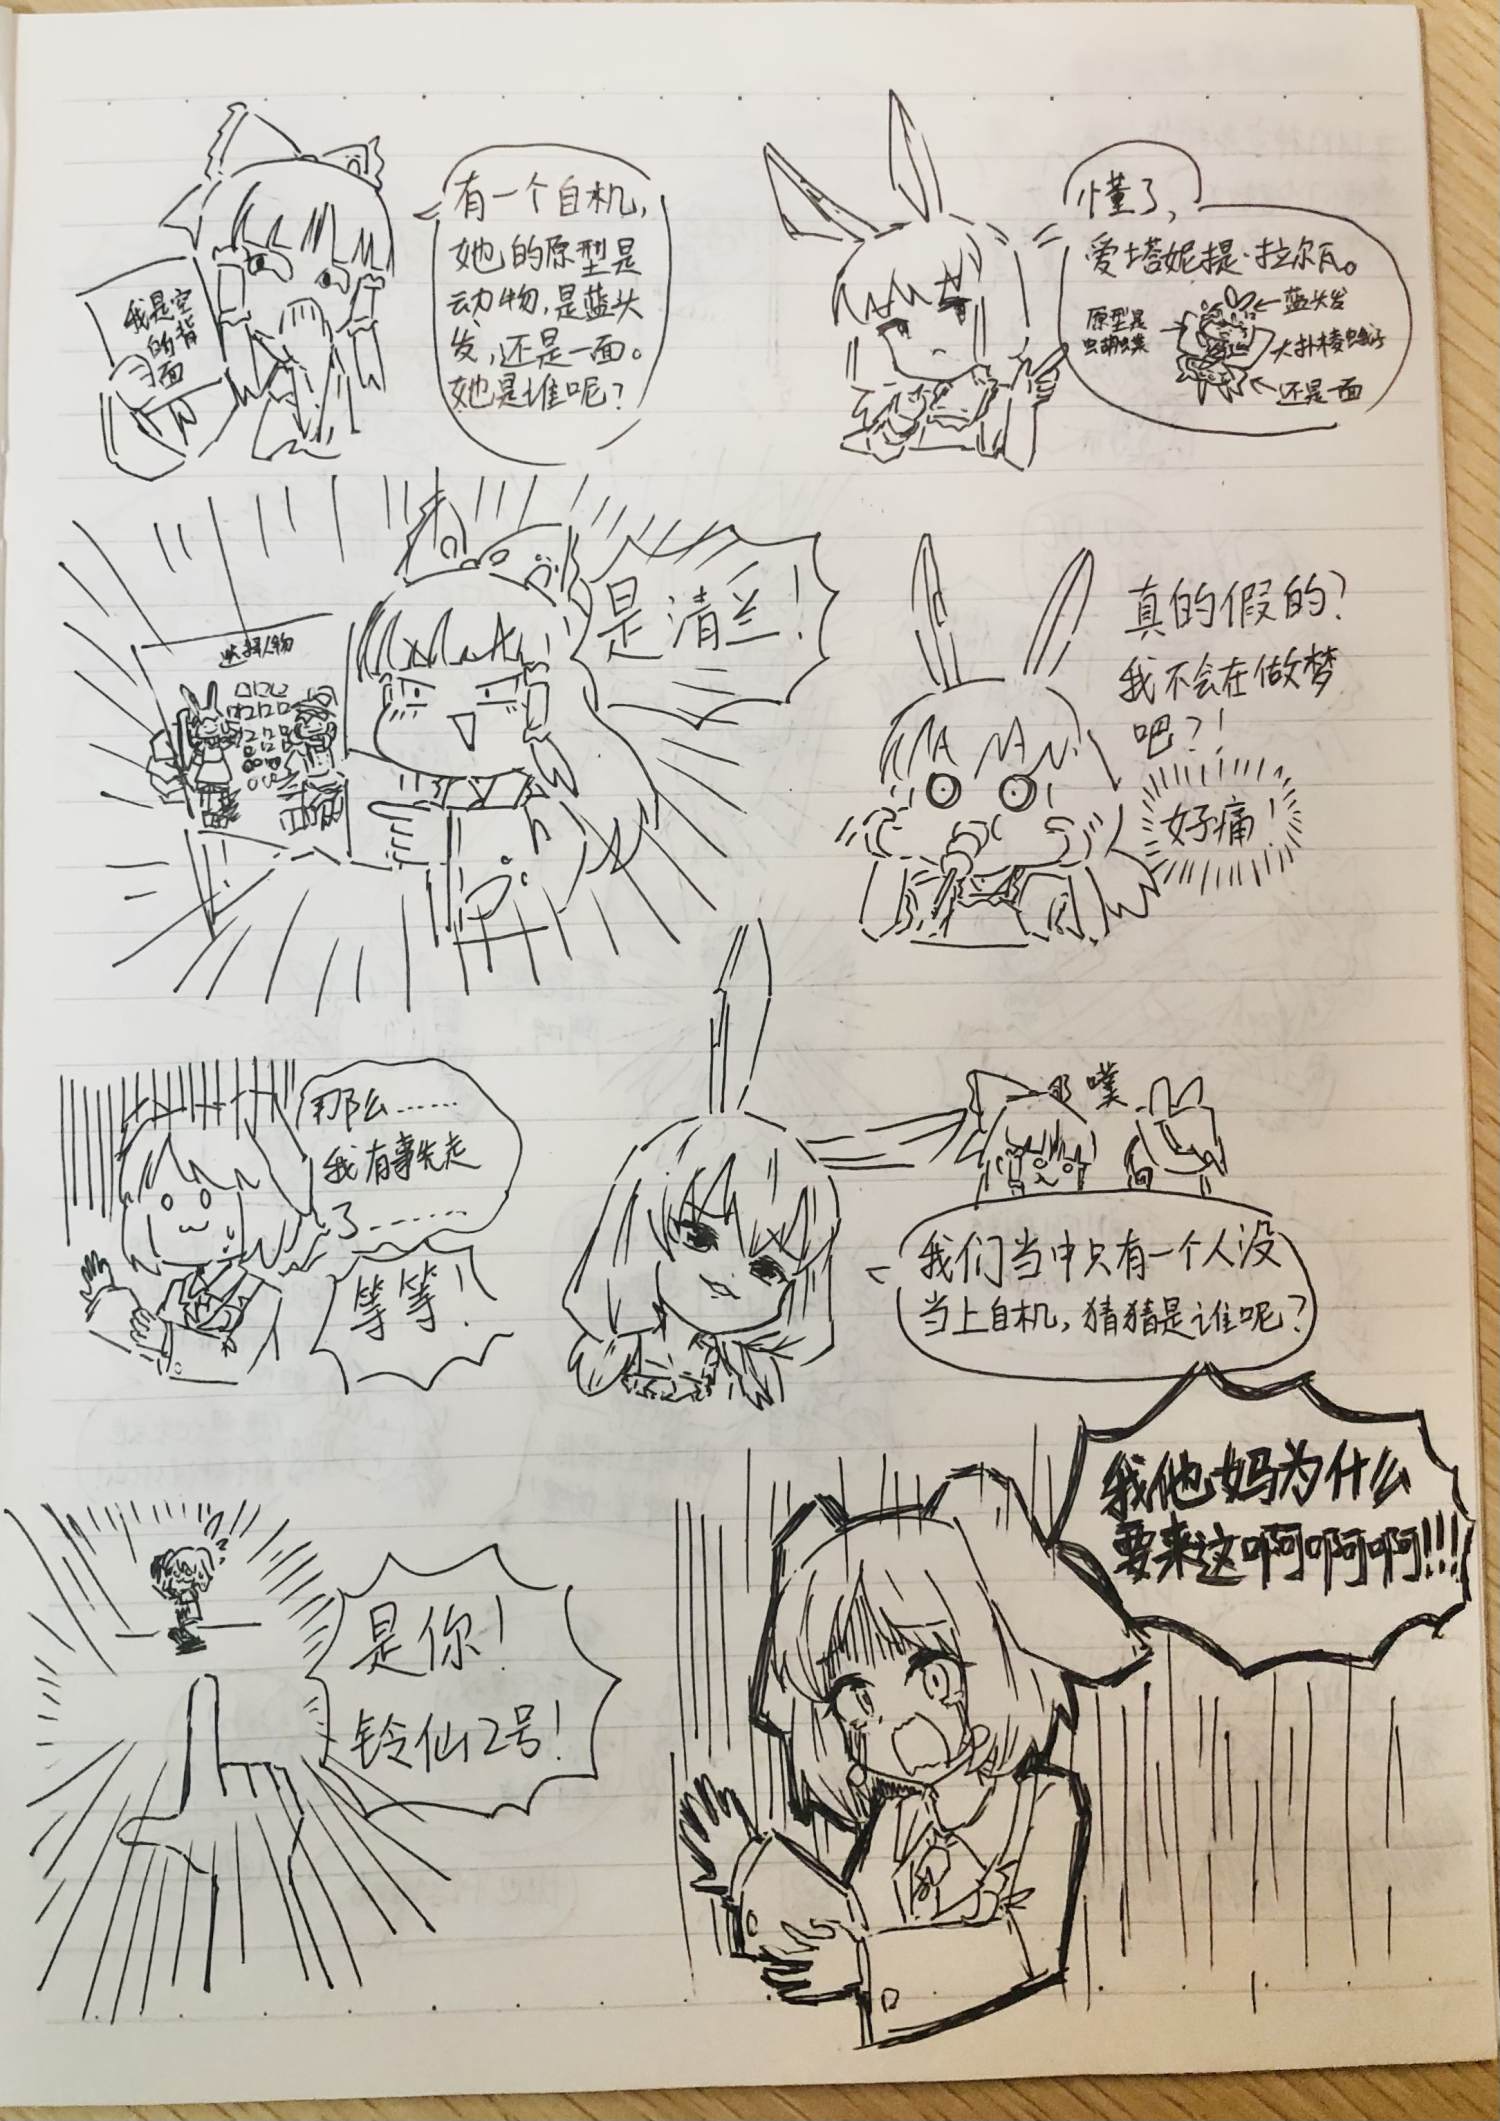 我是空
的背
面
有一个自机,
她的原型是
动物,是蓝头
发,还是一面。
她是谁呢?
懂了,
爱塔妮提·拉尔瓦。
原型是
蝴蝶
蓝头发
大扑棱蛾子
还是一面
选择人物
是清兰!
真的假的?
我不会在做梦
吧?!
好痛!
那么……
我有事先走
了……
等等!
噗
我们当中只有一个人没
当上自机,猜猜是谁呢?
是你!
铃仙2号!
我他妈为什么
要来这啊啊啊!!!